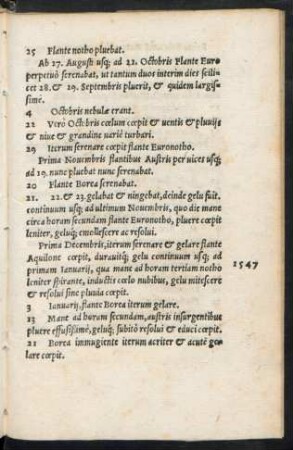 25 Flante notho pluebat.
Ab 27. Augusti usq; ad 22. Octobris Flante Euro
perpetuò serenabat, ut tantum duos interim dies scili
cet 28. & 29. Septembris pluerit, & quidem largis-
simè.
4 Octobris nebulæ erant.
22 Verò Octobris cœlum cœpit & uentis & pluuijs
& niue & grandine varié turbari.
29 Iterum serenare cœpit flante Euronotho.
Prima Nouembris flantibus Austris per uices usq;
ad 19. nunc pluebat nunc serenabat.
20 Flante Borea serenabat.
21. 22. & 23. gelabat & ningebat, deinde gelu fuit,
continuum usq; ad ultimum Nouembris, quo die mane
circa horam secundam flante Euronotho, pluere cœpit
leniter, geluq; emollescere ac resolui.
Prima Decembris, iterum serenare & gelare flante
Aquilone cœpit, durauitq; gelu continuum usq; ad
primam Ianuarij, qua mane ad horam tertiam notho 1547
leniter spirante, inductis cœlo nubibus, gelu mitescere
& resolui sine pluuia cœpit.
3 Ianuarij, flante Borea iterum gelare.
13 Mane ad horam secundam, austris insurgentibus
pluere effusißimè, geluq; subitò resolui & educi cœpit.
21 Borea immugiente iterum acriter & acutè ge-
lare cœpit.